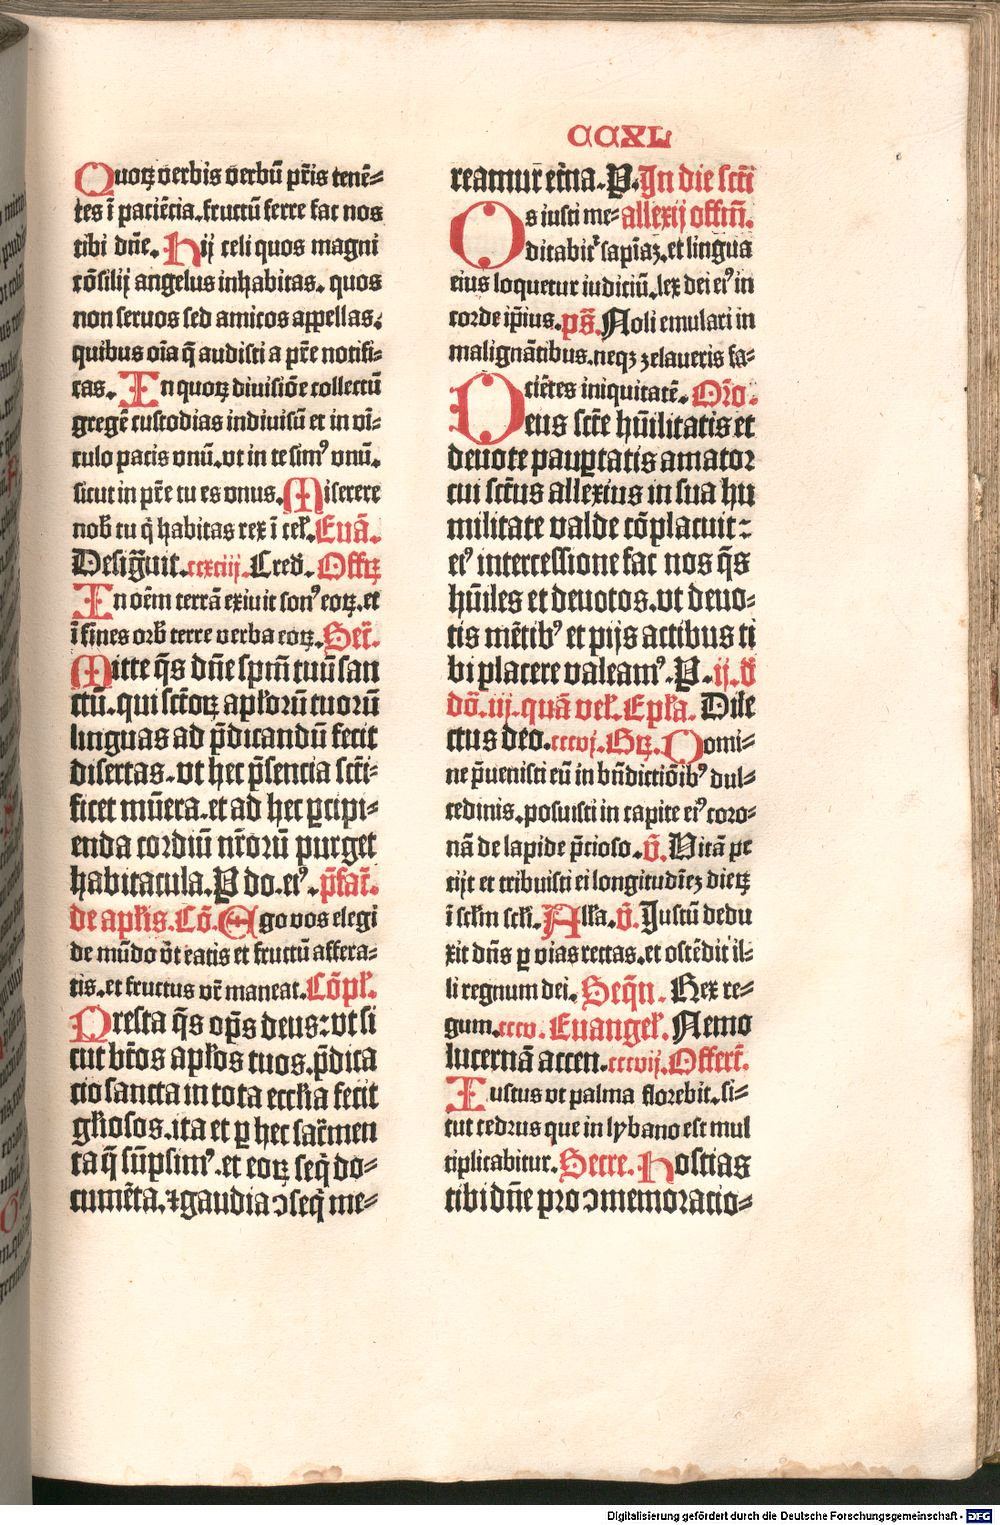 CCXL
Quoꝝ verbis verbū pr̄is tenē⸗
tes ī paciēcia. fructū ferre fac nos
tibi dn̄e. Hij celi quos magni
cōsilij angelus inhabitas. quos
non seruos sed amicos appellas.
quibus oīa q̄ audisti a pr̄e notifi⸗
cas. In quoꝝ diuisiōe collectū
gregē custodias indiuisū et in vī⸗
culo pacis vnū. vt in te simꝰ vnū.
sicut in pr̄e tu es vnus. Miserere
nob̄ tu q̄ habitas rex ī cel̄. Euā.
Desig̅uit. ccxciij. Cred̄. Offꝝ
In oēm terrā exiuit sonꝰ eoꝝ. et
ī fines orb̄ terre verba eoꝝ. Sec̄.
Mitte q̄s dn̄e spm̄ tuū san
ctū. qui sctōꝝ apl̄orū tuorū
linguas ad p̄dicandū fecit
disertas. vt hec p̄sencia scti⸗
ficet mūera. et ad hec ꝑcipi⸗
enda cordiū nr̄orū purget
habitacula. P do. eꝰ. p̄fat̄.
de apl̄is. Cō. Ego vos elegi
de mūdo vt̄ eatis et fructū affera⸗
tis. et fructus vr̄ maneat. Cōpl̄.
Presta q̄s op̄s deus: vt si
cut btōs apl̄os tuos. p̄dica
cio sancta in tota eccl̄ia fecit
gl̄iosos. ita et ꝑ hec sac̄men
ta q̄ sūpsimꝰ. et eoꝝ seq̄ do⸗
cumēta. ⁊ gaudia ɔseq̄ me⸗
reamur et̄na. P. In die scti
Os iusti me⸗ allexij offm̄.
ditabit᷑ sapīaꝫ. et lingua
eius loquetur iudiciū. lex dei eiꝰ in
corde ip̄ius. ps̄. Noli emulari in
malignātibus. neqꝫ zelaueris fa⸗
ciētes iniquitatē. Orō.
Deus scte hūilitatis et
deuote pauꝑtatis amator
cui sctūs allexius in sua hu
militate valde cōplacuit:
eiꝰ intercessione fac nos q̄s
hūiles et deuotos. vt deuo⸗
tis mētibꝰ et pijs actibus ti
bi placere valeamꝰ. P. ij. v̄
dō. iij. quā vel̄. Epl̄a. Dile
ctus deo. cccvj. Gꝝ. Domi⸗
ne p̄uenisti eū in bn̄dictiōibꝰ dul⸗
cedinis. posuisti in capite eiꝰ coro⸗
nā de lapide p̄cioso. v̄. Vitā pe
cijt et tribuisti ei longitudīeꝫ dieꝝ
ī scl̄m scl̄i. All̄a. v̄. Justū dedu
xit dn̄s ꝑ vias rectas. et ostēdit il⸗
li regnum dei. Seqn̄. Rex re⸗
gum. cccv. Euangel̄. Nemo
lucernā accen. cccvij. Offert̄.
Iustus vt palma florebit. si⸗
cut cedrus que in lybano est mul
tiplicabitur. Secre. Hostias
tibi dn̄e pro ɔmemoracio⸗
Digitalisierung gefördert durch die Deutsche Forschungsgemeinschaft - DFG